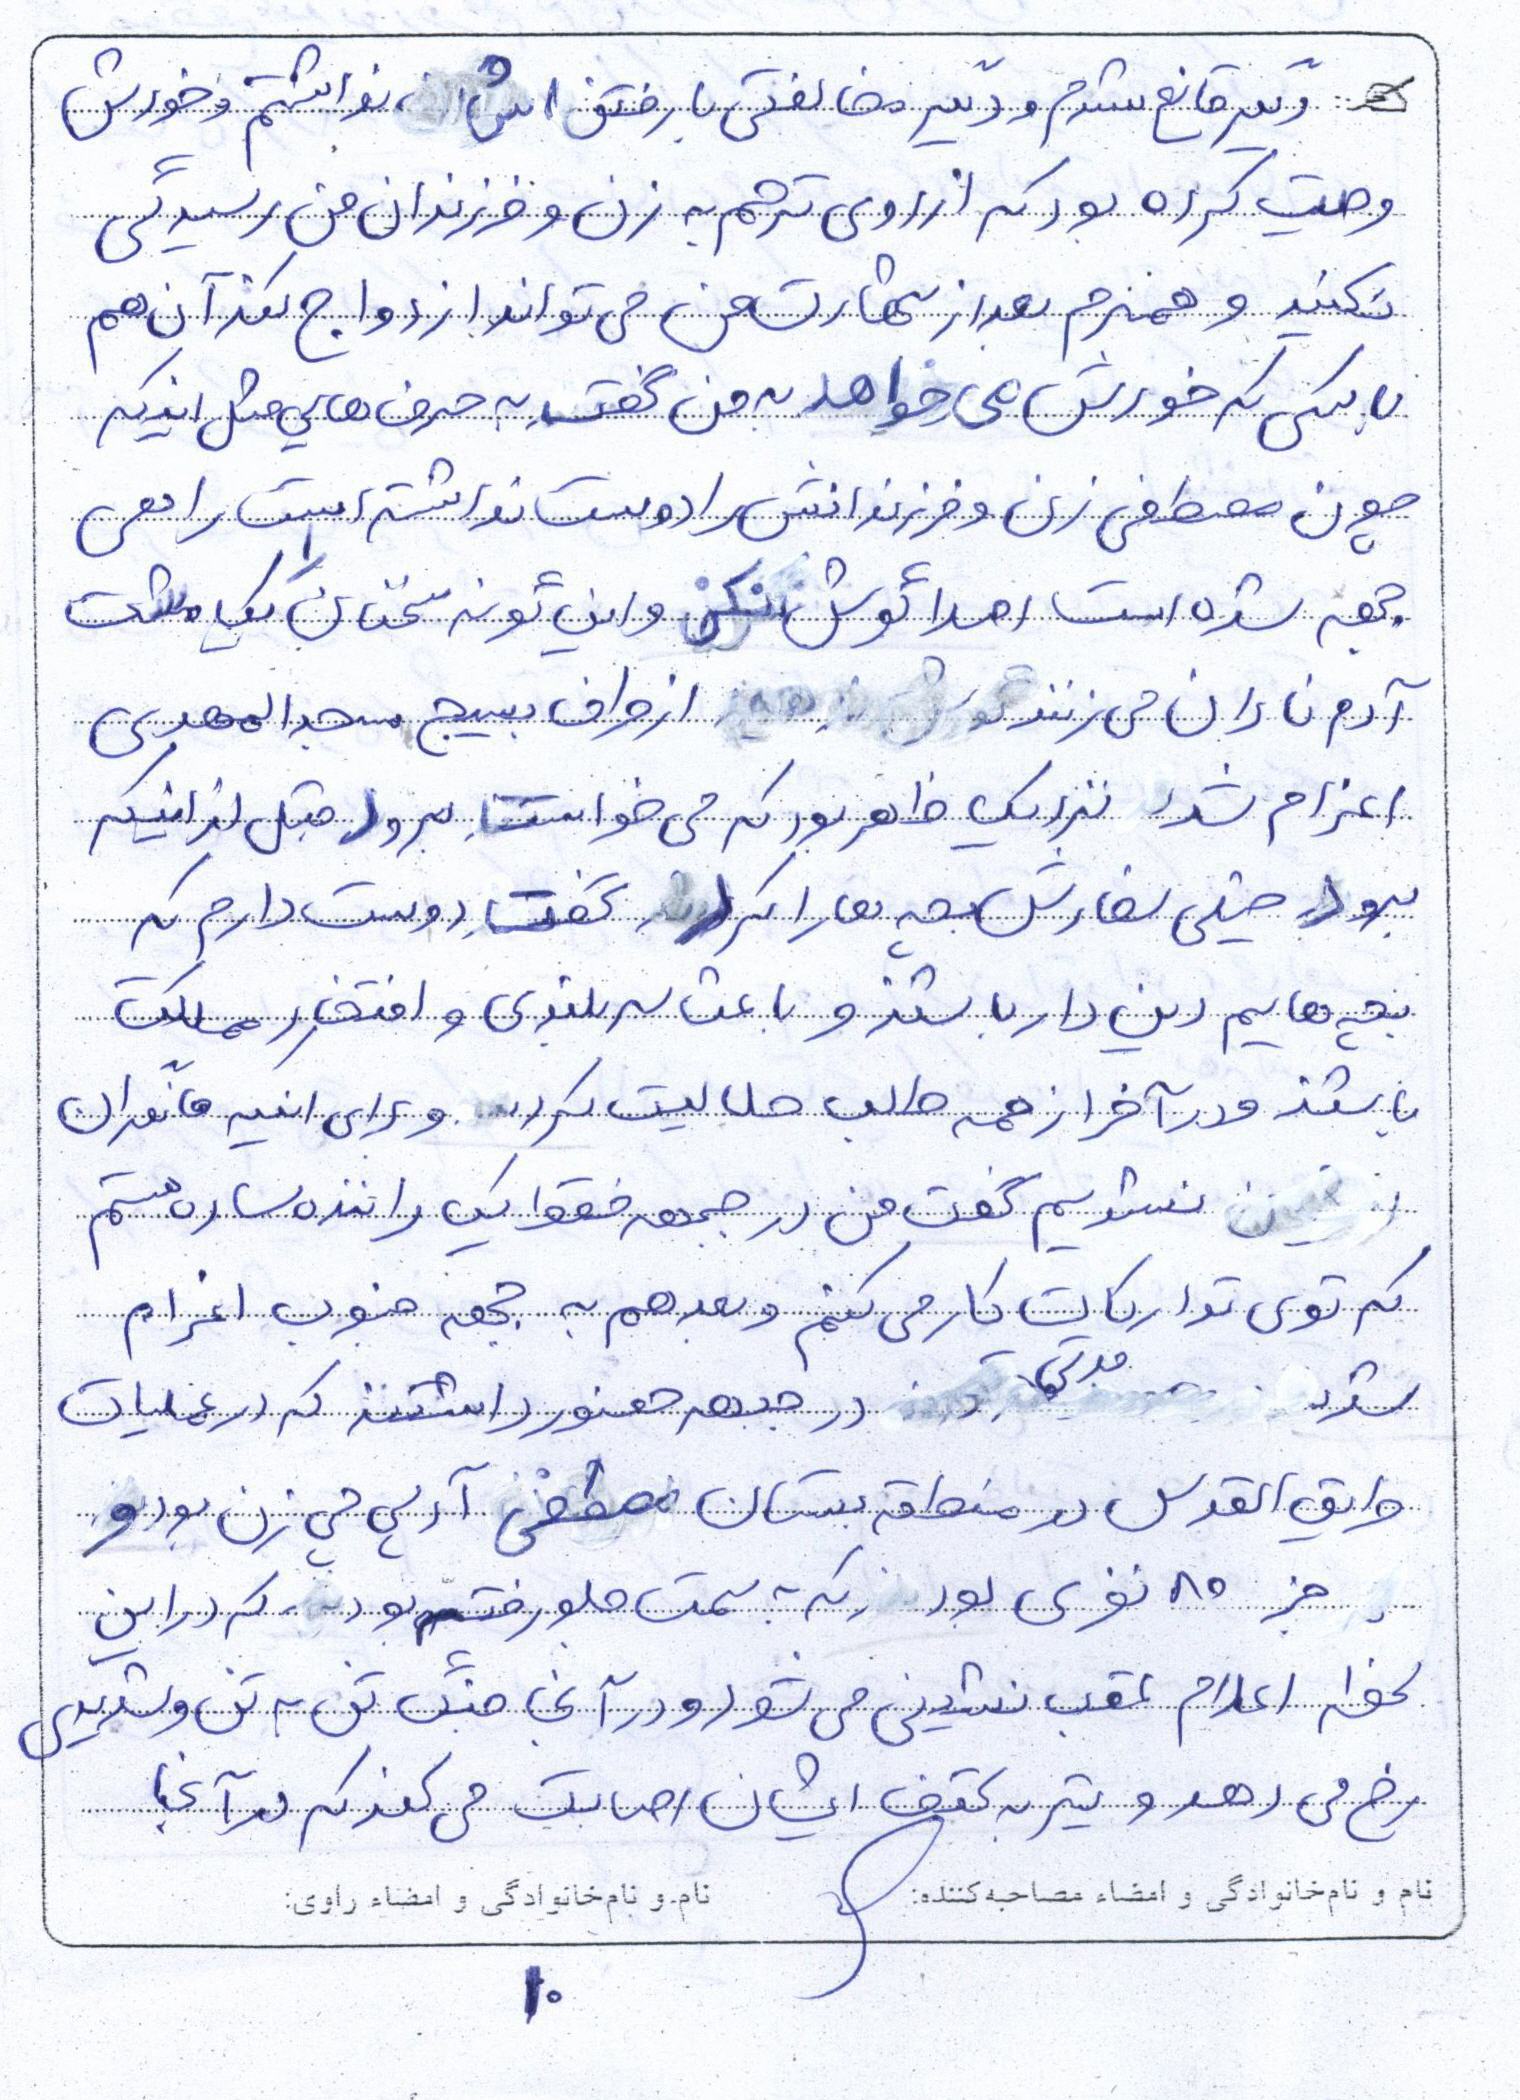 دیگر قانع شدم و دیگر مخالفتی با رفتن اش نداشتم و خودش
وصیت کرده بود که از روی ترحم به زن و فرزندان من رسیدگی
نکنید و همسرم بعد از شهادت من می تواند ازدواج کند آن هم
با کسی که خودش می خواهد به من گفت به حرف هایی مثل اینکه
چون مصطفی زن و فرزندانش را دوست نداشته است راهی
جبهه شده است اصلا گوش نکن و این گونه سخنان را یک مشت
آدم نادان می زنند از طرف بسیج مسجد المهدی
اعزام شد نزدیک ظهر بود که می خواست برود قبل از اینکه
برود خیلی سفارش بچه ها را کرد گفت دوست دارم که
بچه هایم دین دار باشند و باعث سربلندی و افتخار مملکت
باشند و در آخر از همه طلب حلالیت کرد و برای اینکه ما نگران
نشویم گفت من در جبهه فقط یک راننده ساده هستم
که توی تدارکات کار می کنم و بعد هم به جبهه جنوب اعزام
شد مدتی در جبهه حضور داشتند که در عملیات
طریق القدس در منطقه بستان مصطفی آر پی جی زن بود و
جز ۸۰ نفری بود که به سمت جلو رفته بود که در این
لحظه اعلام عقب نشینی می شود و در آنجا جنگ تن به تن و شدیدی
رخ می دهد و تیر به کتف ایشان اصابت می کند که در آنجا
نام و نام خانوادگی و امضاء مصاحبه کننده: نام و نام خانوادگی و امضاء راوی:
۱۰